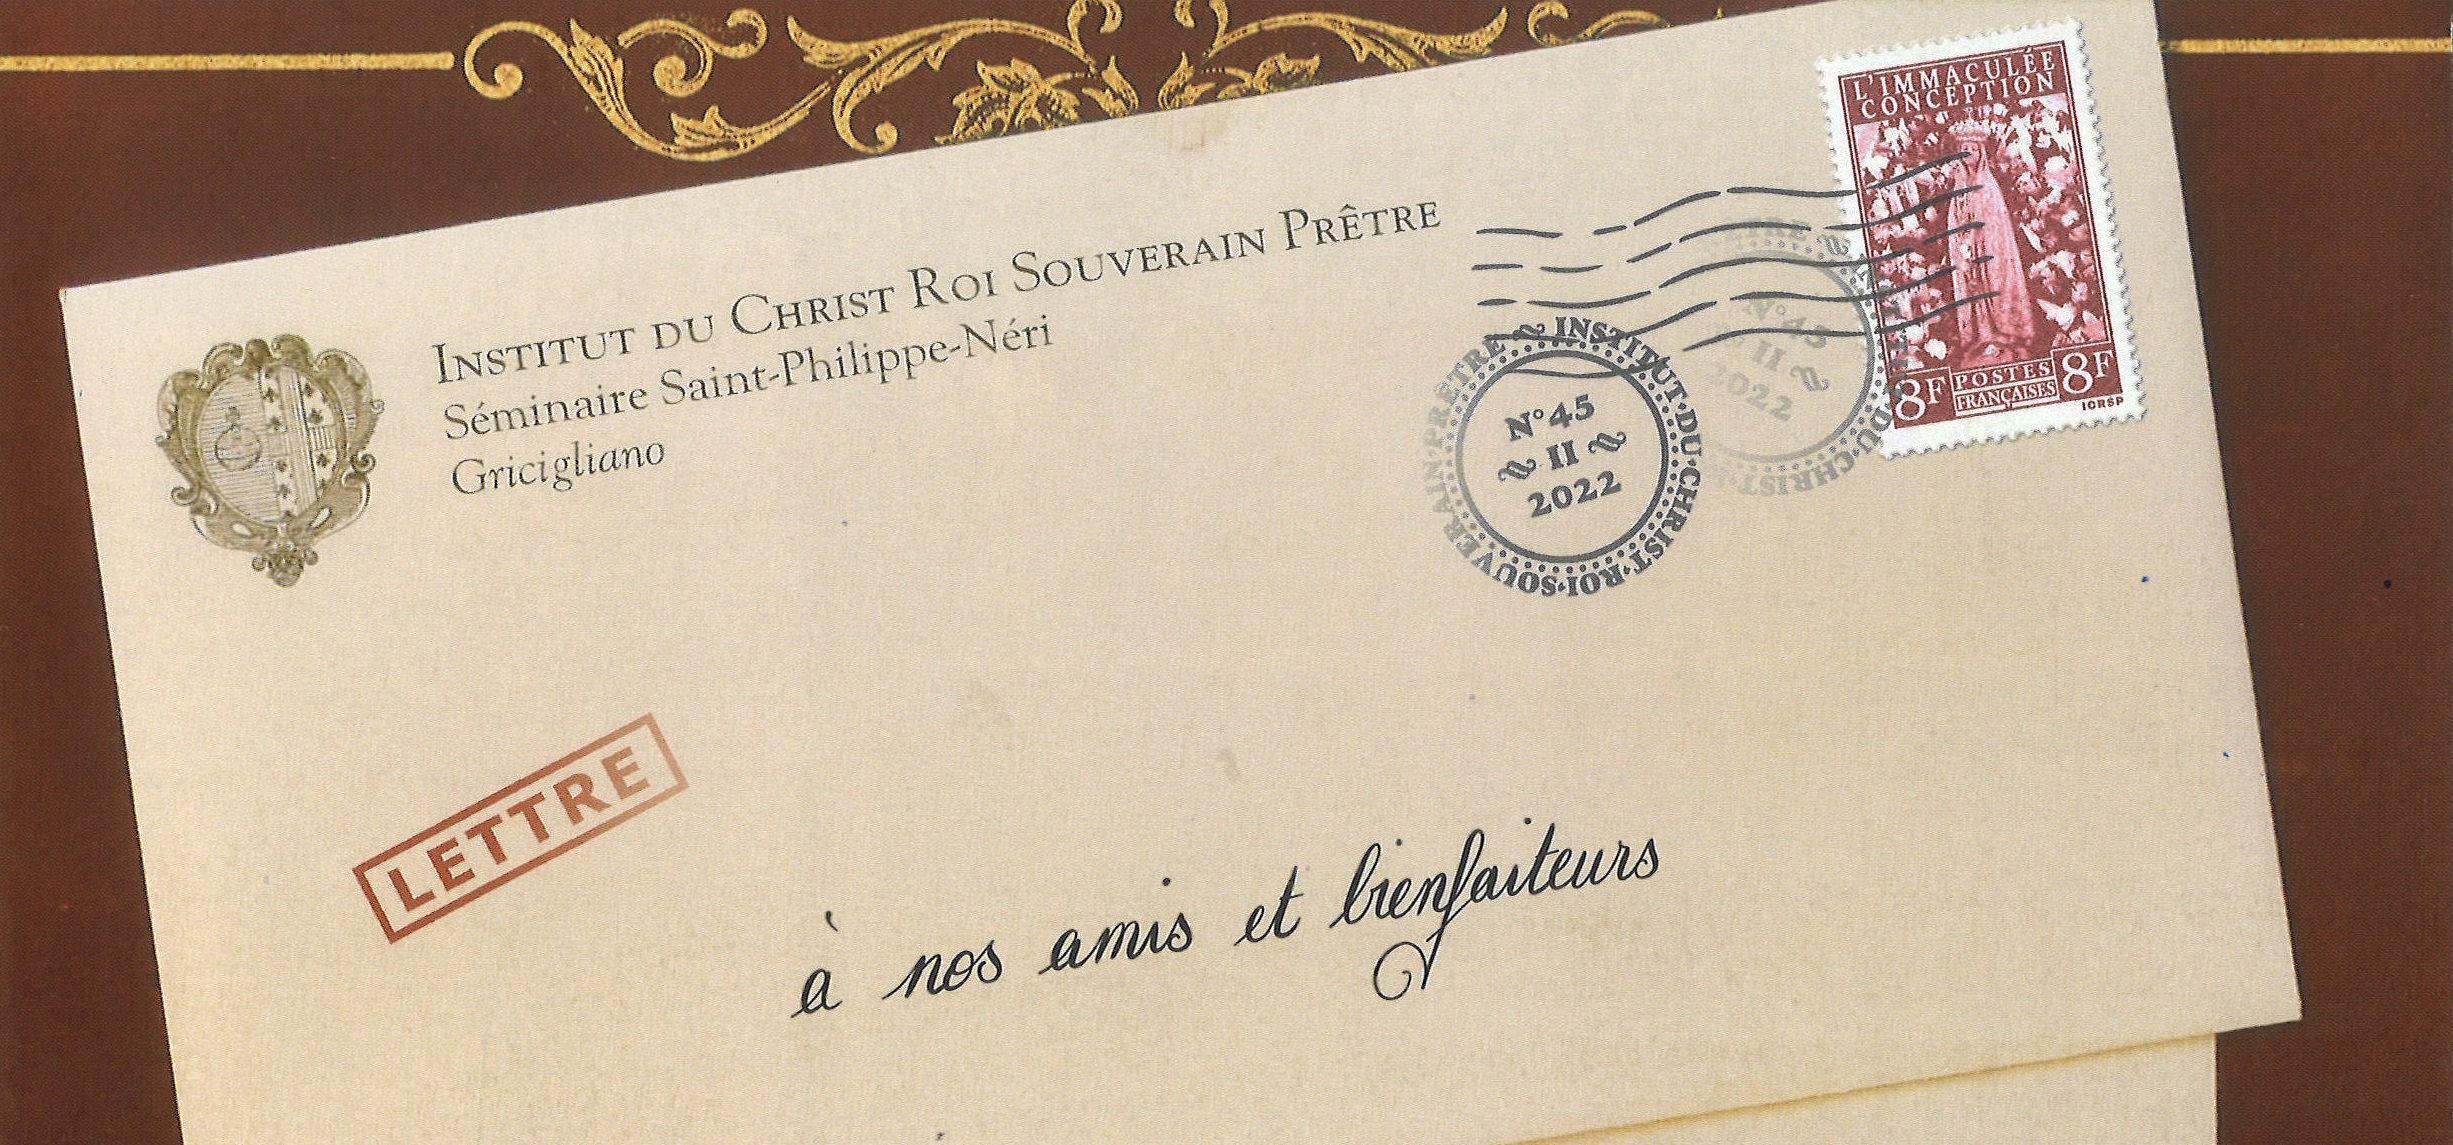 L'IMMACULÉE
CONCEPTION
8F POSTES FRANÇAISES 8F
ICRSP
INSTITUT DU CHRIST ROI SOUVERAIN PRÊTRE
Séminaire Saint-Philippe-Néri
Gricigliano
INSTITUT·DU·CHRIST·ROI·SOUVERAIN·PRÊTRE
N°45
II
2022
N°45
II
2022
LETTRE
à nos amis et bienfaiteurs